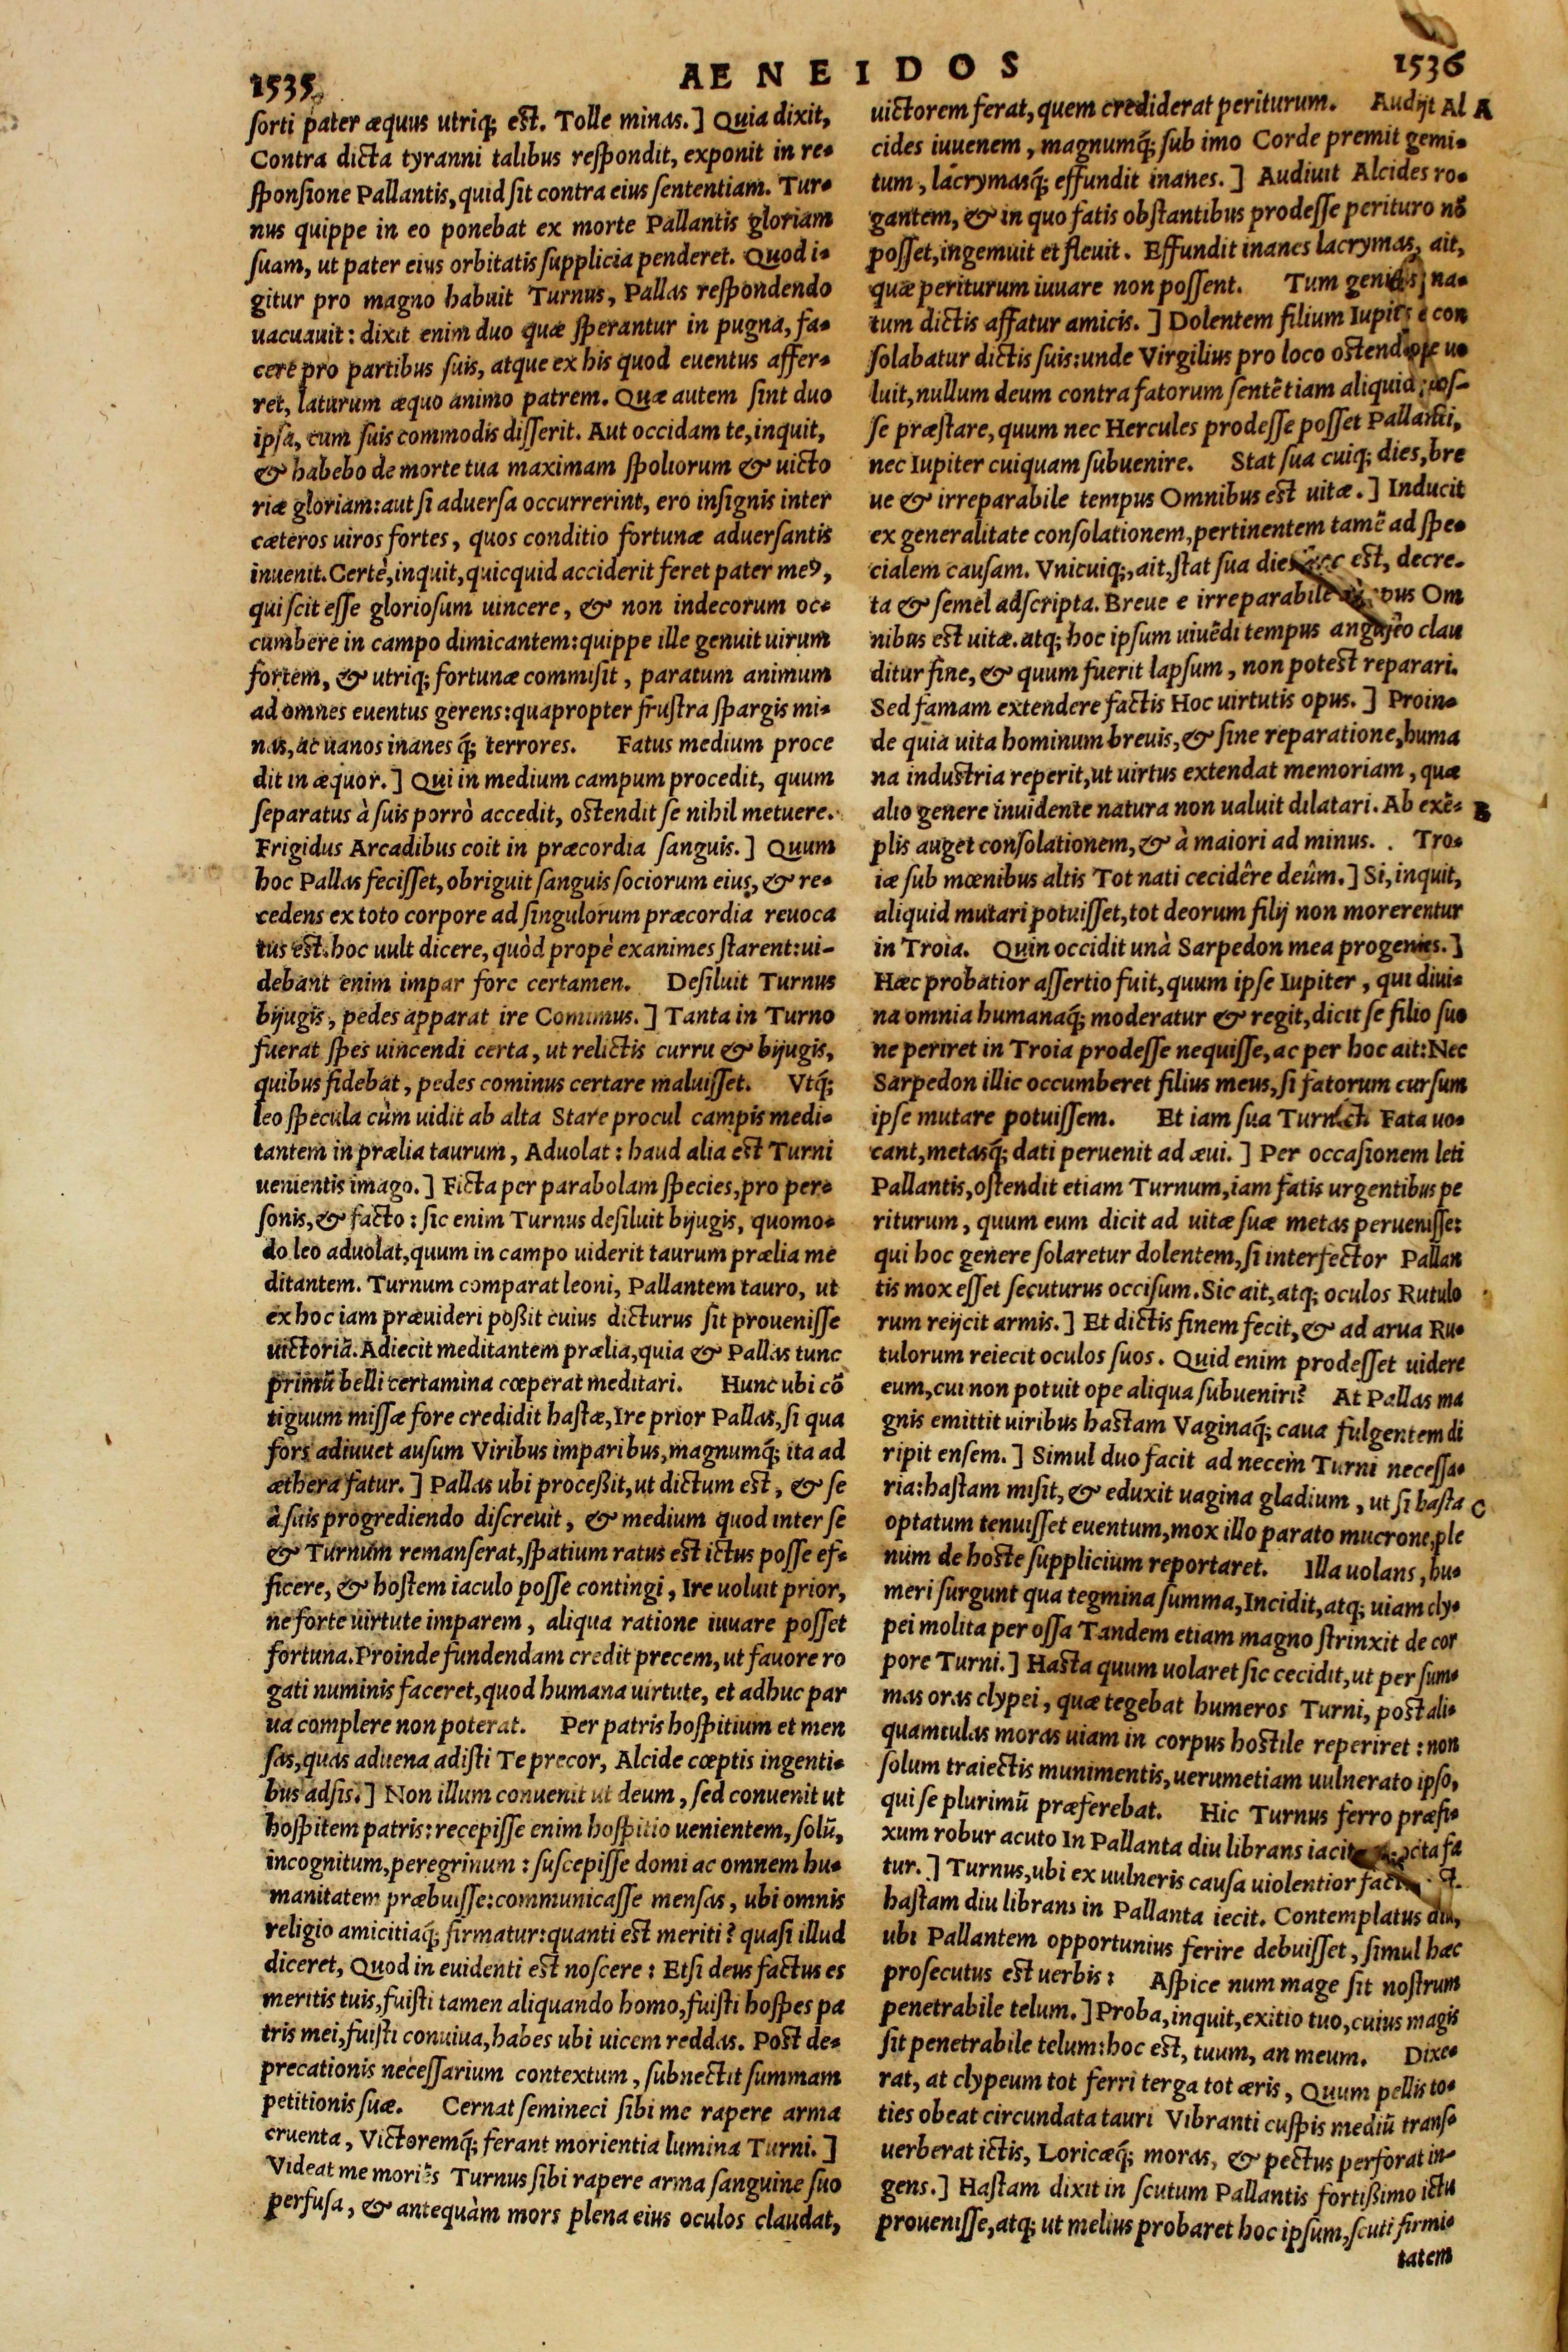 1535
AENEIDOS
1536
sorti pater æquus utriq; est. Tolle minas.] Quia dixit,
Contra dicta tyranni talibus respondit, exponit in re-
sponsione Pallantis, quid sit contra eius sententiam. Tur-
nus quippe in eo ponebat ex morte Pallantis gloriam
suam, ut pater eius orbitatis supplicia penderet. Quod i-
gitur pro magno habuit Turnus, Pallas respondendo
uacuauit: dixit enim duo quæ sperantur in pugna, fa-
cere pro partibus suis, atque ex his quod euentus affer-
ret, laturum æquo animo patrem. Quæ autem sint duo
ipsa, cum suis commodis disserit. Aut occidam te, inquit,
& habebo de morte tua maximam spoliorum & uicto
riæ gloriam: aut si aduersa occurrerint, ero insignis inter
cæteros uiros fortes, quos conditio fortunæ aduersantis
inuenit. Certè, inquit, quicquid acciderit feret pater meꝰ,
qui scit esse gloriosum uincere, & non indecorum oc-
cumbere in campo dimicantem: quippe ille genuit uirum
fortem, & utriq; fortunæ commisit, paratum animum
ad omnes euentus gerens: quapropter frustra spargis mi-
nas, ac uanos inanes q́; terrores. Fatus medium proce
dit in æquor.] Qui in medium campum procedit, quum
separatus à suis porrò accedit, ostendit se nihil metuere.
Frigidus Arcadibus coit in præcordia sanguis.] Quum
hoc Pallas fecisset, obriguit sanguis sociorum eius, & re-
cedens ex toto corpore ad singulorum præcordia reuoca
tus est. hoc uult dicere, quòd propè exanimes starent: ui-
debant enim impar fore certamen. Desiluit Turnus
bijugis, pedes apparat ire Cominus.] Tanta in Turno
fuerat spes uincendi certa, ut relictis curru & bijugis,
quibus fidebat, pedes cominus certare maluisset. Vtq́;
leo specula cùm uidit ab alta Stare procul campis medi-
tantem in prælia taurum, Aduolat: haud alia est Turni
uenientis imago.] Ficta per parabolam species, pro per-
sonis, & facto: sic enim Turnus desiluit bijugis, quomo-
do leo aduolat, quum in campo uiderit taurum prælia me
ditantem. Turnum comparat leoni, Pallantem tauro, ut
ex hoc iam præuideri poßit cuius dicturus sit prouenisse
uictoriã. Adiecit meditantem prælia, quia & Pallas tunc
primũ belli certamina cœperat meditari. Hunc ubi cõ
tiguum missæ fore credidit hastæ, Ire prior Pallas, si qua
fors adiuuet ausum Viribus imparibus, magnumq́; ita ad
æthera fatur.] Pallas ubi proceßit, ut dictum est, & se
à suis progrediendo discreuit, & medium quod inter se
& Turnum remanserat, spatium ratus est ictus posse ef-
ficere, & hostem iaculo posse contingi, Ire uoluit prior,
ne forte uirtute imparem, aliqua ratione iuuare posset
fortuna. Proinde fundendam credit precem, ut fauore ro
gati numinis faceret, quod humana uirtute, et adhuc par
ua complere non poterat. Per patris hospitium et men
sas, quas aduena adisti Te precor, Alcide cœptis ingenti-
bus adsis.] Non illum conuenit ut deum, sed conuenit ut
hospitem patris: recepisse enim hospitio uenientem, solũ,
incognitum, peregrinum: suscepisse domi ac omnem hu-
manitatem præbuisse: communicasse mensas, ubi omnis
religio amicitiaq́; firmatur: quanti est meriti? quasi illud
diceret, Quod in euidenti est noscere: Etsi deus factus es
meritis tuis, fuisti tamen aliquando homo, fuisti hospes pa
tris mei, fuisti conuiua, habes ubi uicem reddas. Post de-
precationis necessarium contextum, subnectit summam
petitionis suæ. Cernat semineci sibi me rapere arma
cruenta, Victoremq́; ferant morientia lumina Turni.]
Videat me moriẽs Turnus sibi rapere arma sanguine suo
perfusa, & antequàm mors plena eius oculos claudat,
uictorem ferat, quem crediderat periturum. Audijt Al A
cides iuuenem, magnumq́; sub imo Corde premit gemi-
tum, lacrymasq́; effundit inanes.] Audiuit Alcides ro-
gantem, & in quo fatis obstantibus prodesse perituro nõ
posset, ingemuit et fleuit. Effundit inanes lacrymas, ait,
quæ periturum iuuare non possent. Tum genitor na-
tum dictis affatur amicis.] Dolentem filium Iupiter con
solabatur dictis suis: unde Virgilius pro loco ostendere uo
luit, nullum deum contra fatorum sentẽtiam aliquid pos-
se præstare, quum nec Hercules prodesse posset Pallanti,
nec Iupiter cuiquam subuenire. Stat sua cuiq; dies, bre
ue & irreparabile tempus Omnibus est uitæ.] Inducit
ex generalitate consolationem, pertinentem tamẽ ad spe-
cialem causam. Vnicuiq;, ait, stat sua dies est, decre-
ta & semel adscripta. Breue e irreparabile Om
nibus est uitæ. atq; hoc ipsum uiuẽdi tempus angusto clau
ditur fine, & quum fuerit lapsum, non potest reparari.
Sed famam extendere factis Hoc uirtutis opus.] Proin-
de quia uita hominum breuis, & sine reparatione, huma
na industria reperit, ut uirtus extendat memoriam, quæ
alio genere inuidente natura non ualuit dilatari. Ab exẽ- B
plis auget consolationem, & à maiori ad minus. . Tro-
iæ sub mœnibus altis Tot nati cecidêre deûm.] Si, inquit,
aliquid mutari potuisset, tot deorum filij non morerentur
in Troia. Quin occidit unà Sarpedon mea progenies.]
Hæc probatior assertio fuit, quum ipse Iupiter, qui diui-
na omnia humanaq́; moderatur & regit, dicit se filio suo
ne periret in Troia prodesse nequisse, ac per hoc ait: Nec
Sarpedon illic occumberet filius meus, si fatorum cursum
ipse mutare potuissem. Et iam sua Fata uo-
cant, metasq́; dati peruenit ad æui.] Per occasionem leti
Pallantis, ostendit etiam Turnum, iam fatis urgentibus pe
riturum, quum eum dicit ad uitæ suæ metas peruenisse:
qui hoc genere solaretur dolentem, si interfector Pallan
tis mox esset secuturus occisum. Sic ait, atq; oculos Rutulo
rum reijcit armis.] Et dictis finem fecit, & ad arua Ru-
tulorum reiecit oculos suos. Quid enim prodesset uidere
eum, cui non potuit ope aliqua subueniri? At Pallas ma
gnis emittit uiribus hastam Vaginaq́; caua fulgentem di
ripit ensem.] Simul duo facit ad necem Turni necessa-
ria: hastam misit, & eduxit uagina gladium, ut si hasta C
optatum tenuisset euentum, mox illo parato mucrone, ple
num de hoste supplicium reportaret. Illa uolans, hu-
meri surgunt qua tegmina summa, Incidit, atq; uiam cly-
pei molita per ossa Tandem etiam magno strinxit de cor
pore Turni.] Hasta quum uolaret sic cecidit, ut per sum-
mas oras clypei, quæ tegebat humeros Turni, post ali-
quamtulas moras uiam in corpus hostile reperiret: non
solum traiectis munimentis, uerumetiam uulnerato ipso,
qui se plurimũ præferebat. Hic Turnus ferro præfi-
xum robur acuto In Pallanta diu librans iacit ita fa
tur.] Turnus, ubi ex uulneris causa uiolentior
hastam diu librans in Pallanta iecit. Contemplatus diu,
ubi Pallantem opportunius ferire debuisset, simul hæc
prosecutus est uerbis: Aspice num mage sit nostrum
penetrabile telum.] Proba, inquit, exitio tuo, cuius magis
sit penetrabile telum: hoc est, tuum, an meum. Dixe-
rat, at clypeum tot ferri terga tot æris, Quum pellis to-
ties obeat circundata tauri Vibranti cuspis mediũ trans-
uerberat ictis, Loricæq́; moras, & pectus perforat in-
gens.] Hastam dixit in scutum Pallantis fortißimo ictu
prouenisse, atq; ut melius probaret hoc ipsum, scuti firmi-
tatem